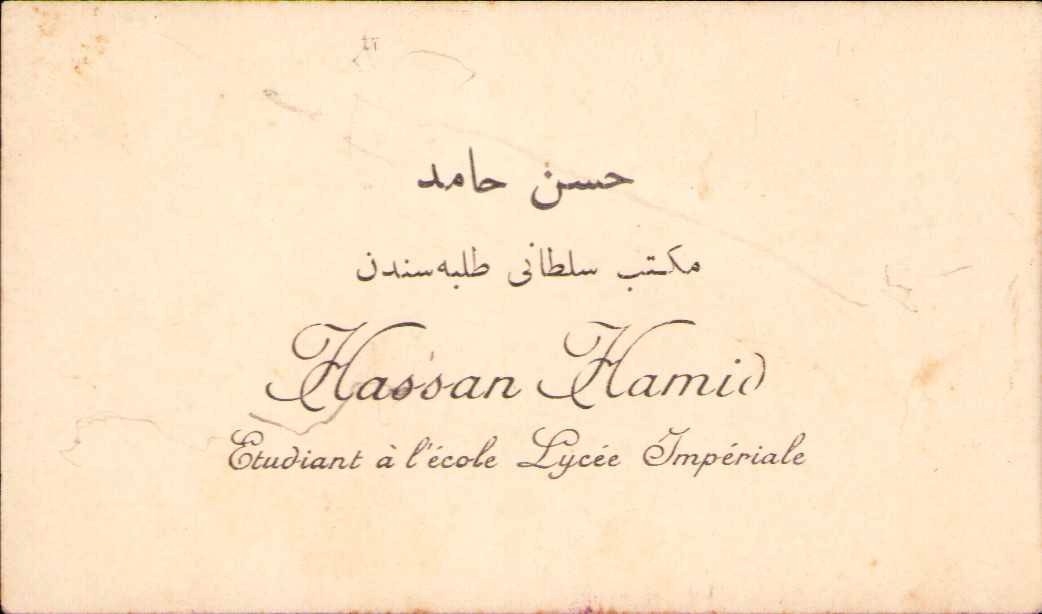 حسن حامد
مكتب سلطانی طلبه‌سندن
Hassan Hamid
Etudiant à l'école Lycée Impériale